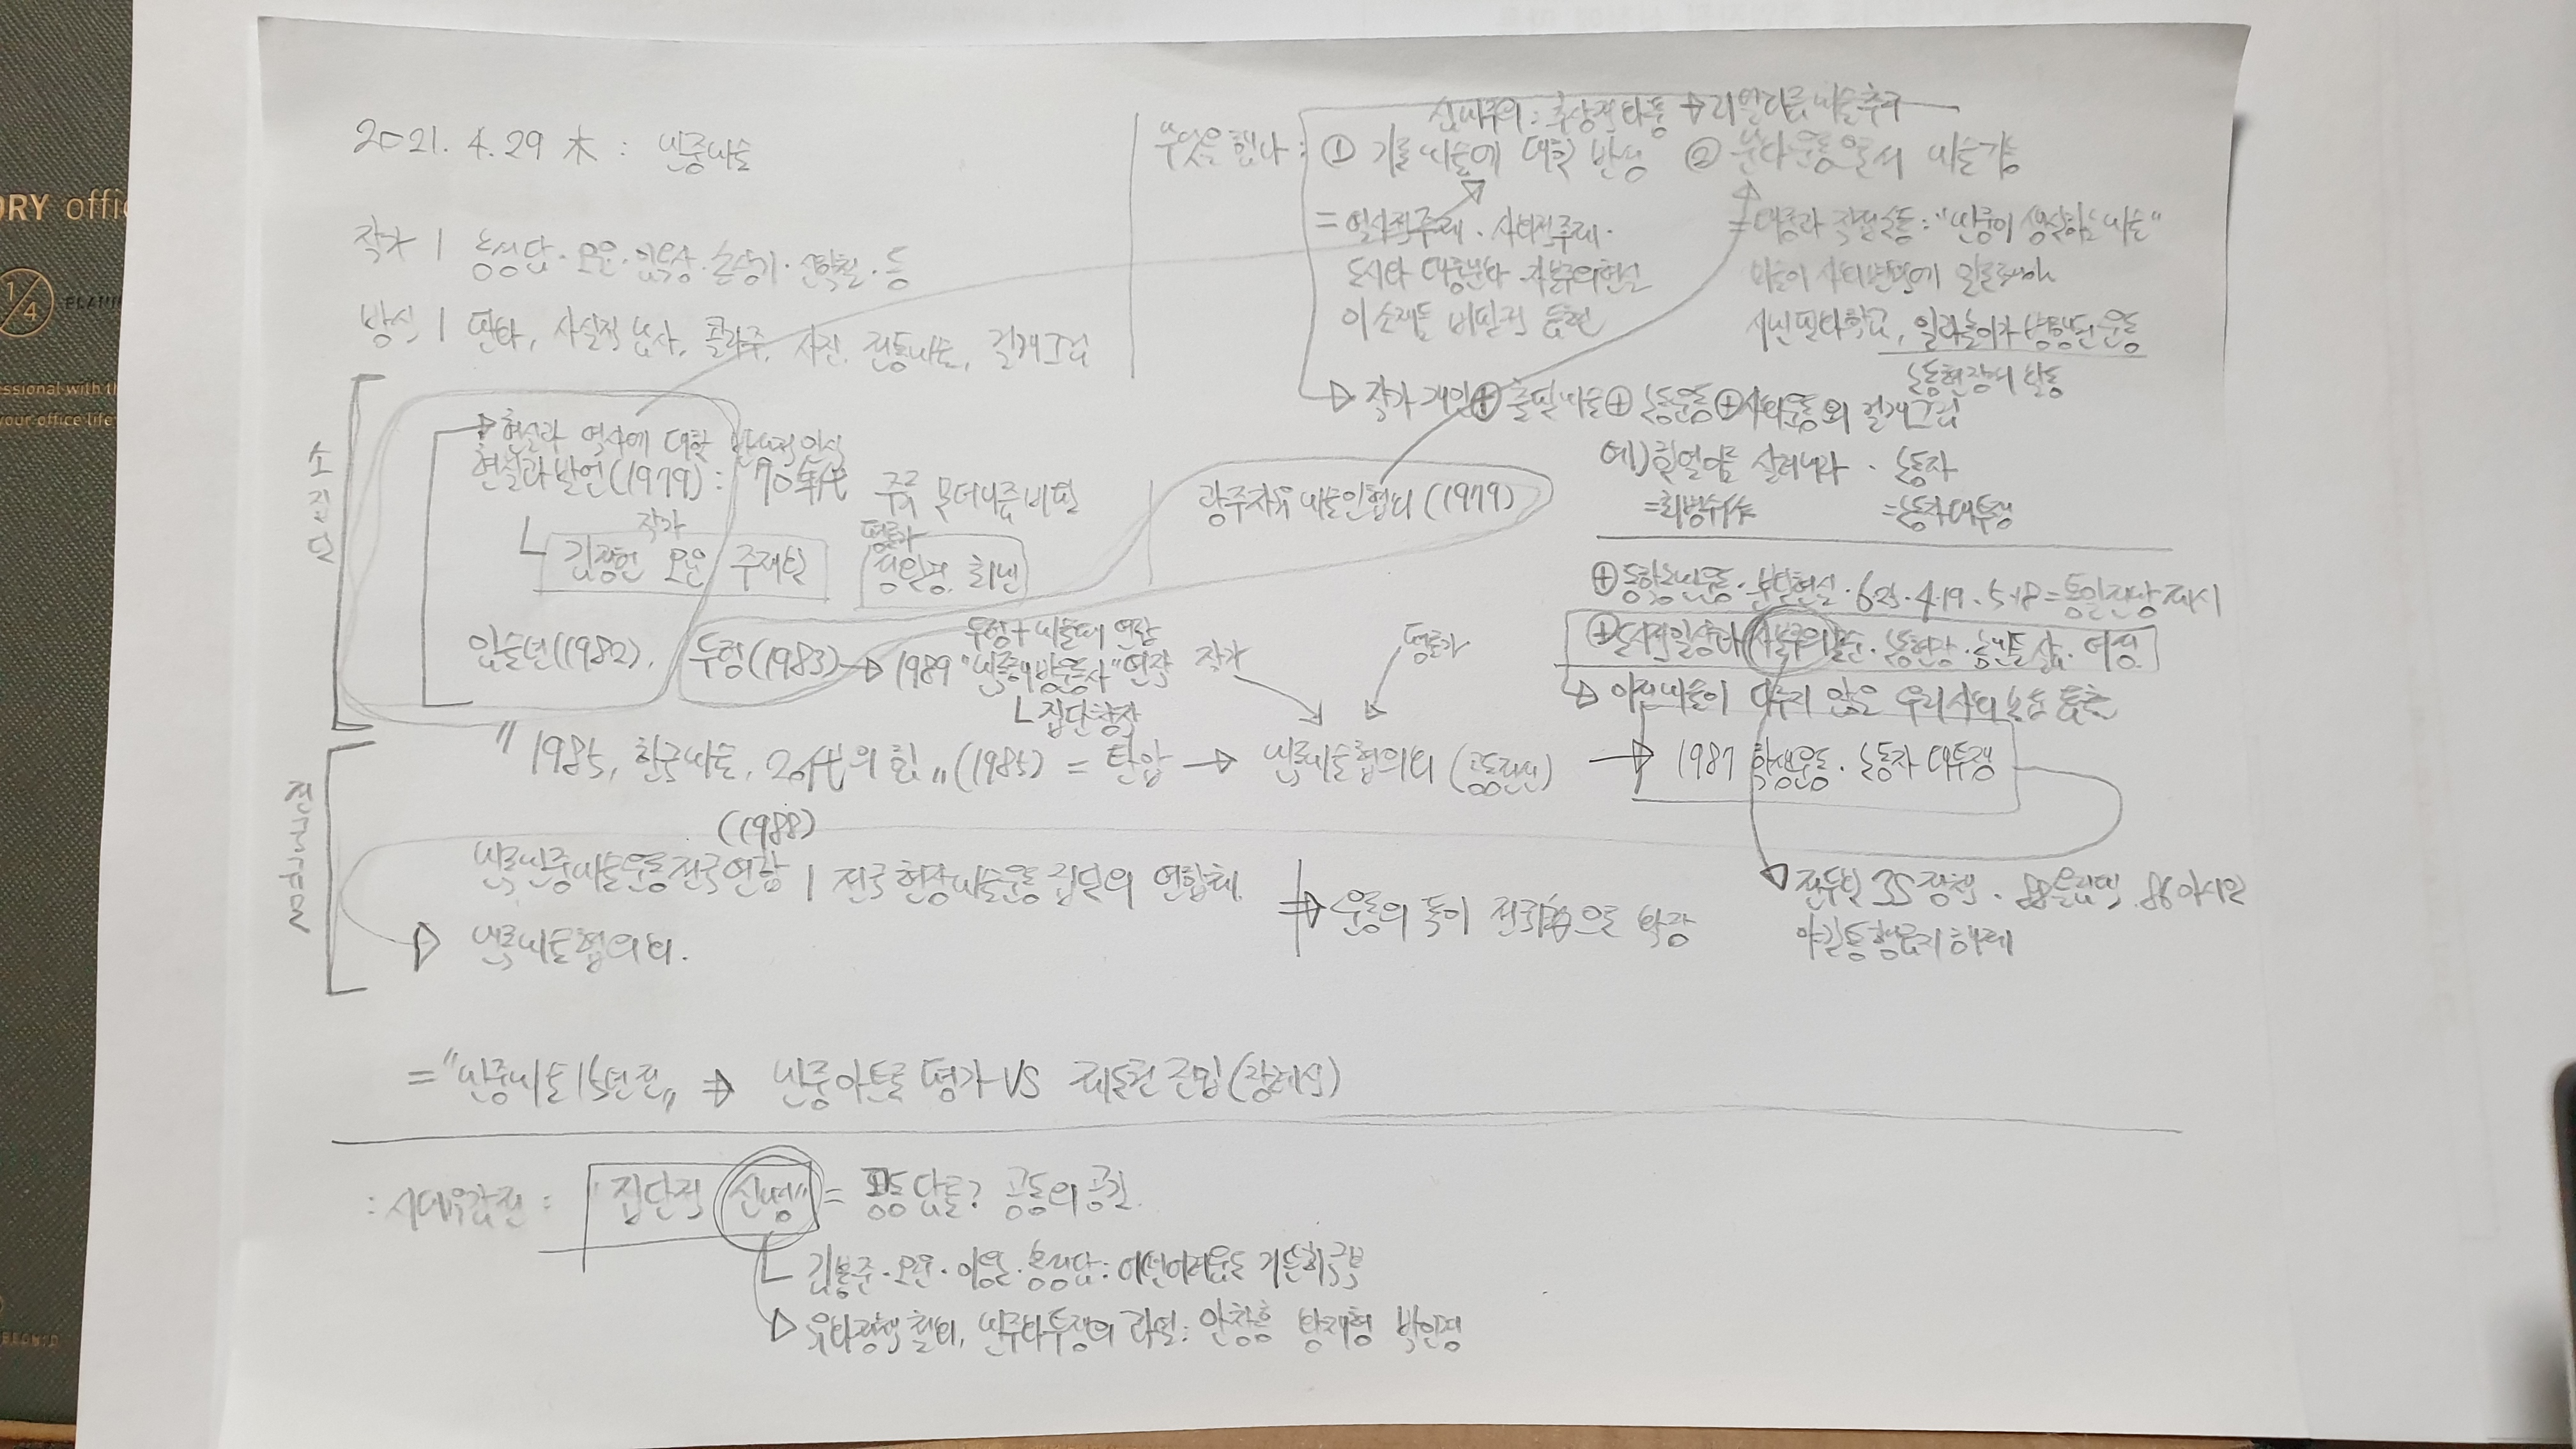 2021. 4. 29 木 : 민중미술
작가 | 홍성담 · 오윤 · 임옥상 · 손상기 · 신학철 · 등
방식 | 판화, 사실적 묘사, 콜라주, 사진, 전통미술, 걸개그림
무엇을 했나 :
신미주의 : 추상적 화풍 → 리얼리즘 미술 추구
① 기존 미술에 대한 반성 ② 문화운동으로서 미술 기능
= 역사적 주제 · 사회적 주제 ·
도시화 대중문화 · 자본주의 현실
이 소재들 비판적 표현
= 대중과 직접 소통 : "민중이 생산하는 미술"
미술이 사회변혁에 일조해야
시민판화학교, 일과놀이가 병행된 운동
노동현장의 활동
→ 작가 개인 + 출판미술 + 노동운동 + 사회운동의 걸개그림
예) 한열이를 살려내라 · 노동자
= 최병수作 = 노동자대투쟁
소집단
현실과 역사에 대한 반성적 인식
현실과 발언 (1979) : 70年代 주류 모더니즘 비판
작가
김정헌 오윤 주재환
평론가
성완경 최민
광주자유미술인협의 (1979)
임술년 (1982).
두렁 (1983) → 1989 "민족해방운동사" 연작
두렁 + 미술패 연합
└ 집단창작
+ 동학농민운동 · 분단현실 · 6·25 · 4·19 · 5·18 = 통일전망 제시
+ 도시적 일상과 자본주의 모순 · 노동현장 · 농민들 삶 · 여성
→ 이전미술이 다루지 않은 우리 사회 모순 표출
작가
평론가
전국규모
"1985, 한국미술, 20代의 힘" (1985) = 탄압 → 민족미술협의회 (공동전선) → 1987 학생운동 · 노동자 대투쟁
(1988)
민족민중미술운동전국연합 | 전국 현장미술운동 집단의 연합체.
→ 민족미술협의회.
→ 운동의 폭이 전국적으로 확장
→ 전두환 3S 정책 · 88올림픽 · 86아시안
야간통행금지 해제
= "민중미술 15년전" → 민중아트로 평가 VS 제도권 진입 (장례식)
: 시대유감전 : "집단적 신명" = 공동 담론? 공동의 공간.
└ 김봉준 · 오윤 · 이응노 · 홍성담 :
→ 유화정책 철회, 민주화투쟁의 과열 : 안창홍 황재형 박인경